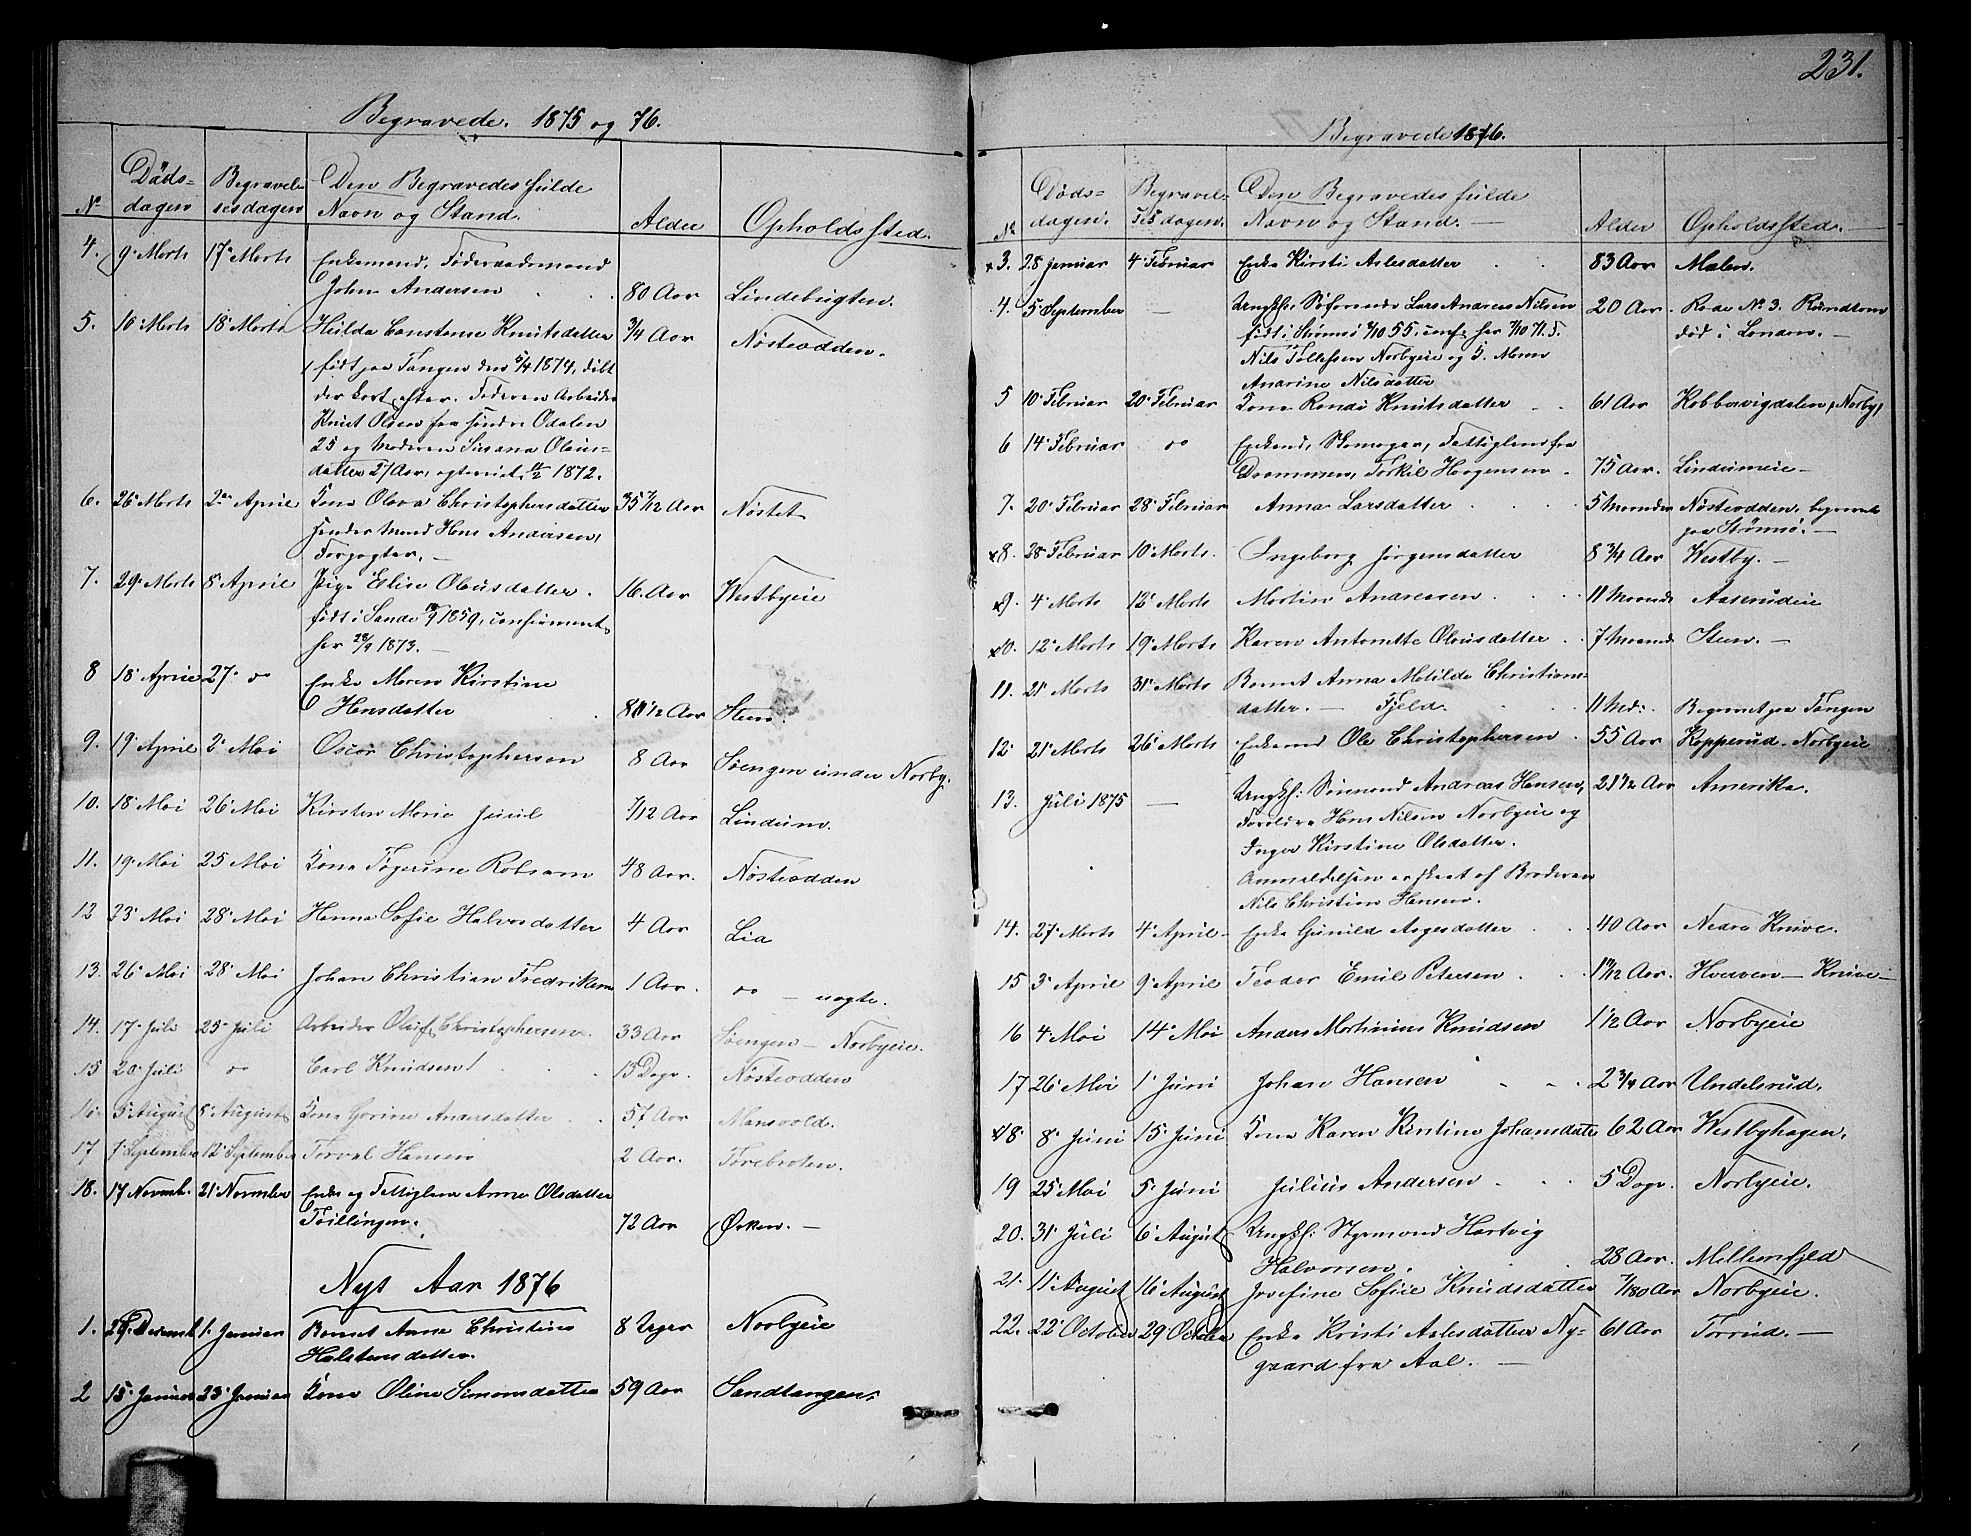 231.
Begravede. 1875 og 76.
No
Døds-
dagen
Begravel-
sesdagen
Den Begravedes fulde
Navn og Stand.
Alder
Opholdssted.
4. 9 Marts 17 Marts Enkemand, Føderaadsmand
John Andersen 80 Aar Lindebugten.
5. 16 Marts 18 Marts Hulda Constance Knutsdatter 3/4 Aar Nøsteodden.
født paa Tangen den 5/4 1874, døbt
der kort efter. Faderen Arbeider
Knut Olsen fra søndre Odalen
25 og Moderen Susana Olaus-
datter 27 Aar, egteviet 1872.
6. 26 Marts 2 April Kona Olava Christophersdatter 35 7/12 Aar Nøstet
hendes Mand Hans Andersen,
Forpagter. —
7. 29 Marts 8 April Pige Elise Olausdatter. 16. Aar Westbyeie
født i Sande 1859, confirmeret
her 28/9 1873. —
8 18 April 27 do Enke Maren Kirstine
Hansdatter 80 1/2 Aar Steen.
9. 19 April 2 Mai Oscar Christophersen 8 Aar Søengen under Norby.
10. 18 Mai 26 Mai Kirsten Marie Juul 7/12 Aar Lindum.
11. 19 Mai 25 Mai Kona Togerine Robsam 48 Aar. Nøsteodden
12 23 Mai 28 Mai Hanna Sofie Halvorsdatter 4 Aar Lia
13. 26 Mai 28 Mai Johan Christian Fredriksen 1 Aar. do — uægte.
14. 17 Juli 25 Juli Arbeider Oluf Christophersen. 33 Aar Søengen — Norbyeie.
15 20 Juli do Carl Knudsen 13 Dage. Nøsteodden
16. 5 August 8 August Kona Gorine Andersdatter 57 Aar Mansvold.
17 7 September 12 September Torval Hansen 2 Aar. Torebroten.
18. 17 Novmb. 21 November Enke og Fattiglem Anne Olsdatter
Tvillingen. 72 Aar Ørken. —
Nyt Aar 1876
1. 29. Decemb 1. Januar Barnet Anne Christine 8 Uger Norbyeie
Halstensdatter.
2 15 Januar 23 Januar Kona Oline Simonsdatter 59 Aar Sandtangen.
Begravede 1876.
No
Døds-
dagen.
Begravel-
ses dagen.
Den Begravedes fulde
Navn og Stand. —
Alder
Opholdssted. —
x3. 28 Januar 4 Februar Enke Kirsti Aslesdatter 83 Aar Malen.
4. 5 September — Ungkf. Søfarende Lars Anareus Nilsen 20 Aar. Rode No 3. Rundtom
født i Strømsø 3/10 55, conf. her 1/10 71. F. død i London. —
Nils Tollefsen Norbyeie og K. Maren
Anarine Nilsdatter
5 10 Februar 20 Februar Kona Randi Knutsdatter 61 Aar Kobbervigdalen, Norby
6 14 Februar do Enkemd, Skomager, Fattiglem fra
Drammen, Torkil Horgensen. 75 Aar. Lindumeie —
7. 20 Februar 28 Februar Anna Larsdatter 5 Maaneder Nøsteodden, begravet
paa Strømsø. —
x8. 28 Februar 10 Marts. Ingeborg Jørgensdatter 8 3/4 Aar Westby. —
x9. 4 Marts 12 Marts Martin Andreasen 11 Maaneder Aaserudeie
x10. 12 Marts 19 Marts Karen Antonette Olausdatter 7 Maaned. Steen. —
11. 21 Marts 31 Marts Barnet Anna Matilde Christians-
datter. — Fjeld. 11 Mdr. Begravet paa Tangen
12 21 Marts 26 Marts Enkemd Ole Christophersen 55 Aar Kopperud. Norbyeie
13. Juli 1875 — Ungkf. Sømand Andreas Hansen, 21 1/2 Aar Amerika.
Forældre Hans Nilsen Norbyeie og
Inger Kirstine Olsdatter.
Anmeldelsen er skeet af Broderen
Nils Christian Hansen.
14. 27 Marts 4 April Enke Gunild Aagesdatter 40 Aar Nedre Knive.
15 3 April 9 April Teodor Emil Petersen 1 1/12 Aar. Hverven — Knive —
16 4 Mai 14 Mai Anders Martinius Knudsen 1 1/2 Aar Norbyeie
17 26 Mai 1 Juni Johan Hansen 2 3/4 Aar Undelrud.
x18. 8 Juni 15 Juni Kona Karen Kirstine Johansdatter 62 Aar Westbyhagen.
19 25 Mai 5 Juni Julius Andersen 5 Dage. Norbyeie.
20. 31 Juli 6 August Ungkf. Styrmand Hartvig
Halvorsen. 28 Aar. Mellemfjeld
21. 11 August 16 August Josefine Sofie Knudsdatter Aar Norbyeie.
22. 22 October 29 October Enke Kristi Aslesdatter Ny- 61 Aar Torrud. —
gaard fra Aal. —